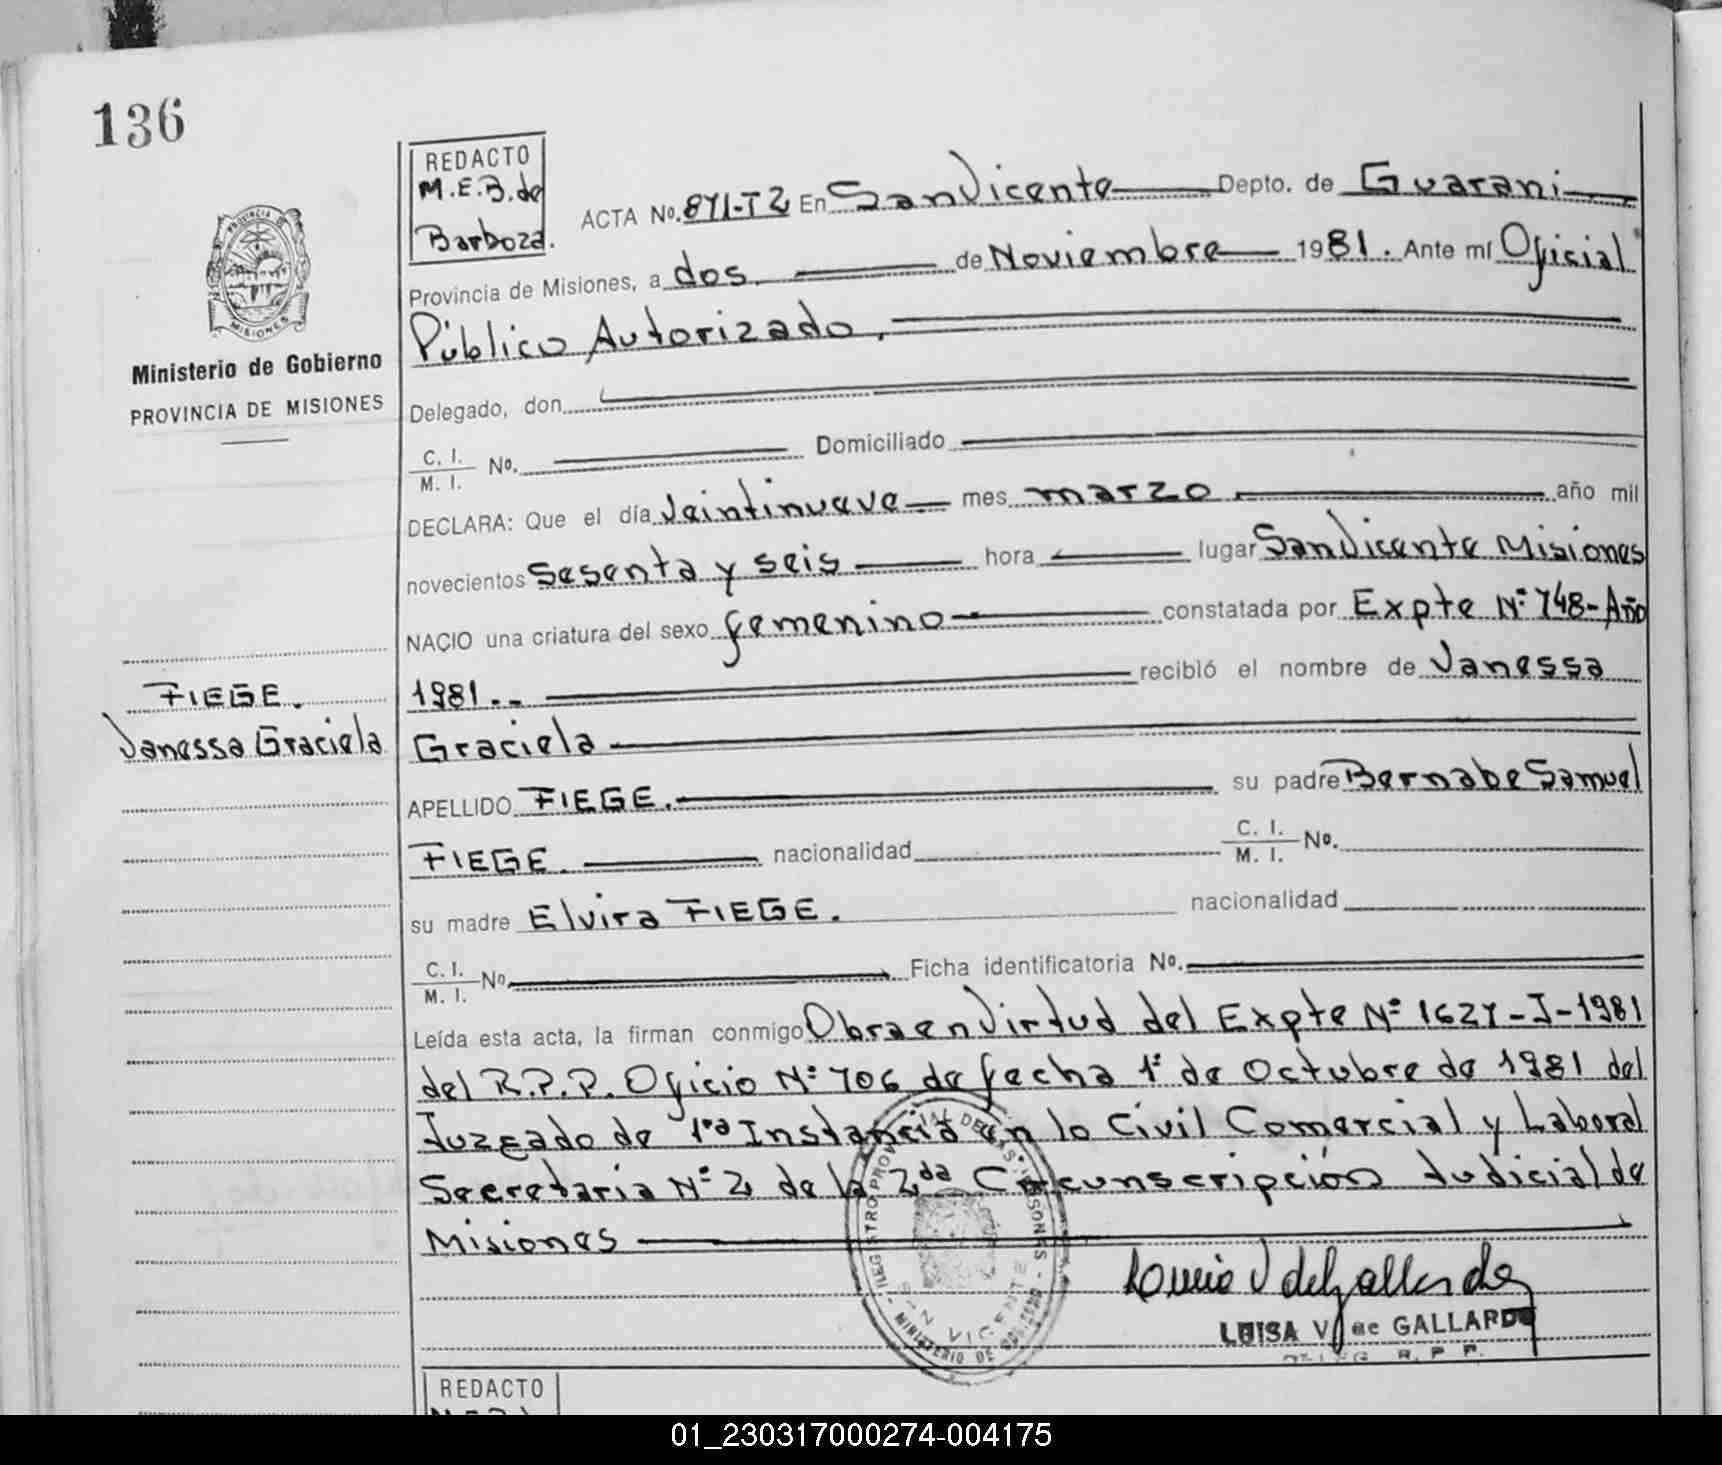 136
REDACTO
M.E.B. de
Barboza.
ACTA No. 871-T2 En San Vicente Depto. de Guarani
Provincia de Misiones, a dos de Noviembre 1981. Ante mí Oficial
Público Autorizado.
Delegado, don
C. I.
M. I. No. Domiciliado
DECLARA: Que el día Veintinueve mes marzo año mil
novecientos Sesenta y seis hora lugar San Vicente Misiones
NACIO una criatura del sexo femenino constatada por Expte Nº 748-Año
1981.- recibió el nombre de Vanessa
Graciela
APELLIDO FIEGE. su padre Bernabe Samuel
FIEGE. nacionalidad C. I.
M. I. No.
su madre Elvira FIEGE. nacionalidad
C. I.
M. I. No. Ficha identificatoria No.
Leída esta acta, la firman conmigo Obra en Virtud del Expte Nº 1627-J-1981
del R.P.P. Oficio Nº 706 de fecha 1º de Octubre de 1981 del
Juzgado de 1ra Instancia en lo Civil Comercial y Laboral
Secretaria Nº 2 de la 2da Circunscripción Judicial de
Misiones
LUISA V. de GALLARDO
R. P. P.
MISIONES
Ministerio de Gobierno
PROVINCIA DE MISIONES
FIEGE.
Vanessa Graciela
REDACTO
01_230317000274-004175